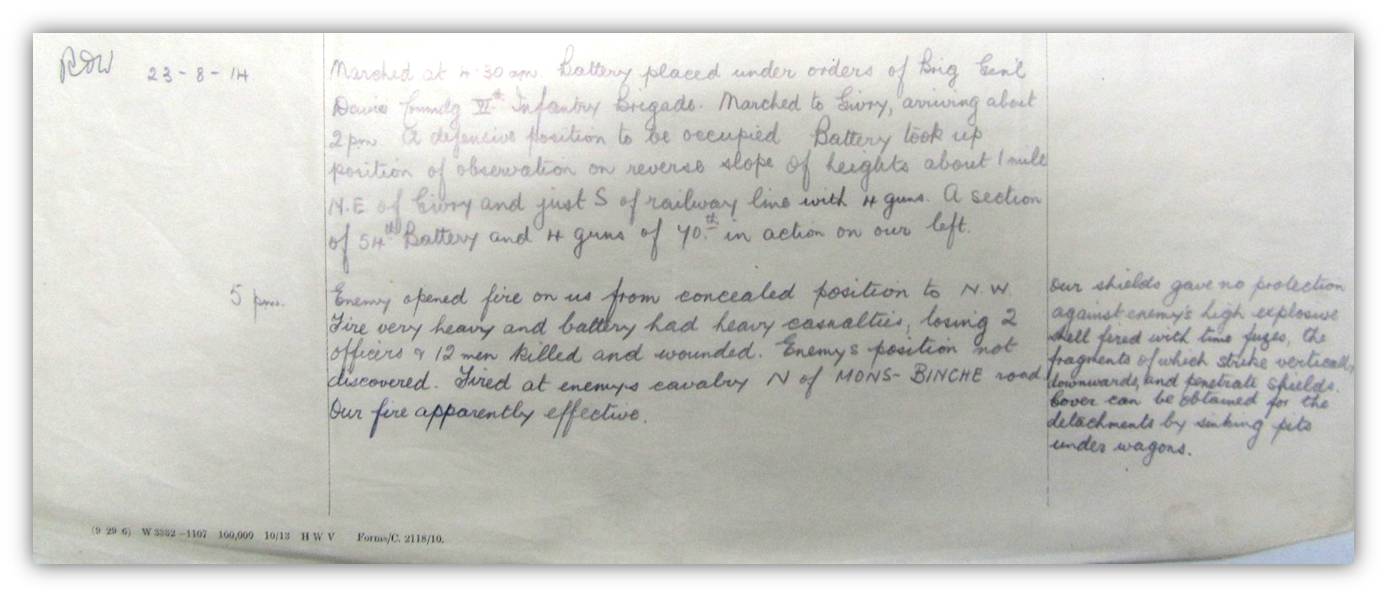 RDW 23-8-14 Marched at 4.30 am. Battery placed under orders of Brig Gen'l
Davies Commdg VIth Infantry Brigade. Marched to Givry, arriving about
2 pm A defensive position to be occupied Battery took up
position of observation on reverse slope of heights about 1 mile
N.E of Givry and just S of railway line with 4 guns. A section
of 54th Battery and 4 guns of 70th in action on our left.
5 pm. Enemy opened fire on us from concealed position to N.W.
Fire very heavy and battery had heavy casualties, losing 2
officers & 12 men killed and wounded. Enemys position not
discovered. Fired at enemys cavalry N of MONS-BINCHE road
Our fire apparently effective.
Our shields gave no protection
against enemy's high explosive
shell fired with time fuzes, the
fragments of which strike vertically
downwards, and penetrate shields.
Cover can be obtained for the
detachments by sinking pits
under wagons.
(9 29 6) W 3332-1107 100,000 10/13 H W V Forms/C. 2118/10.